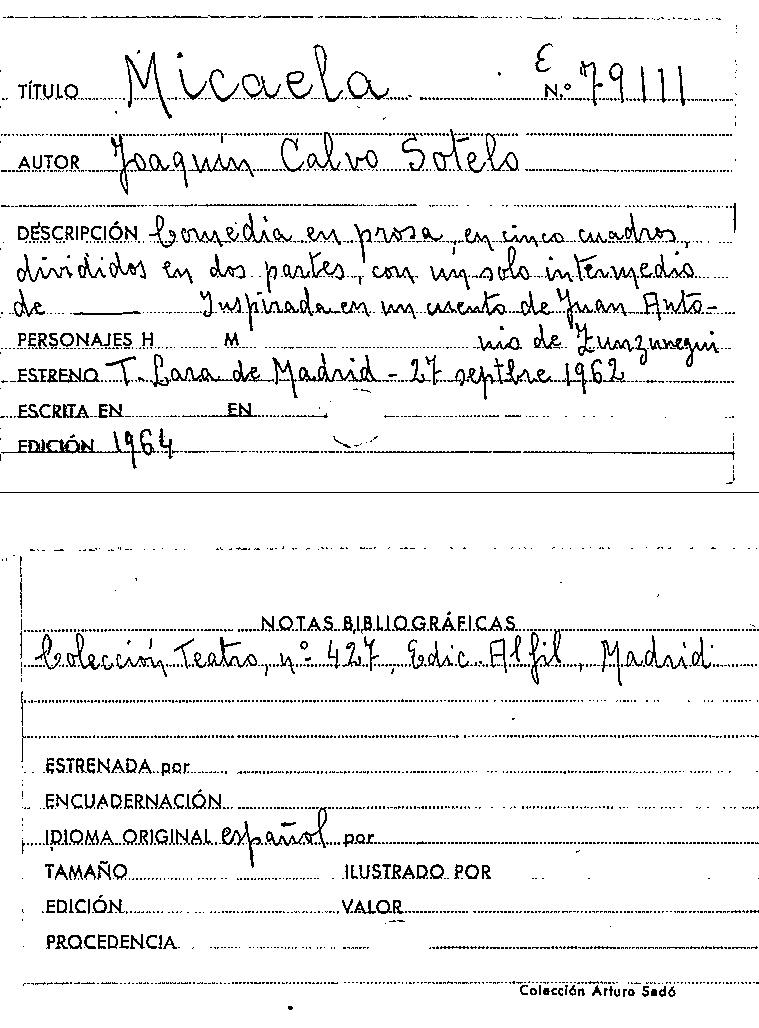 TÍTULO Micaela E N.º 79111
AUTOR Joaquín Calvo Sotelo
DESCRIPCIÓN Comedia en prosa, en cinco cuadros,
divididos en dos partes, con un solo intermedio
de ____ Inspirada en un cuento de Juan Anto-
PERSONAJES H M nio de Zunzunegui
ESTRENO T. Lara de Madrid - 27 septbre 1962
ESCRITA EN EN
EDICIÓN 1964
NOTAS BIBLIOGRÁFICAS
Colección Teatro, nº 427, Edic. Alfil, Madrid
ESTRENADA por
ENCUADERNACIÓN
IDIOMA ORIGINAL español por
TAMAÑO ILUSTRADO POR
EDICIÓN VALOR
PROCEDENCIA
Colección Arturo Sedó